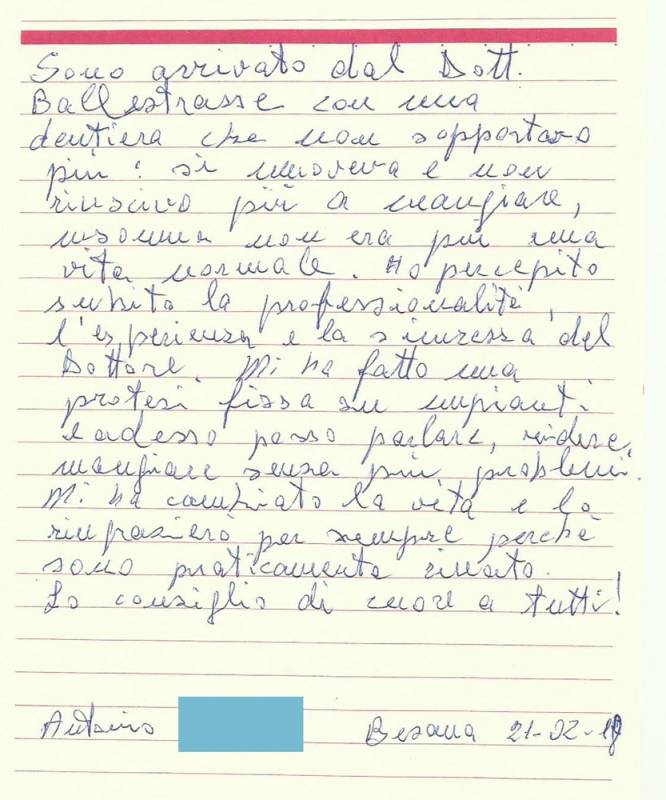 Sono arrivato dal Dott.
Ballestrasse con una
dentiera che non sopportavo
più: si muoveva e non
riuscivo più a mangiare,
insomma non era più una
vita normale. Ho percepito
subito la professionalità,
l'esperienza e la sicurezza del
Dottore. Mi ha fatto una
protesi fissa su impianti
e adesso posso parlare, ridere,
mangiare senza più problemi.
Mi ha cambiato la vita e lo
ringrazierò per sempre perchè
sono praticamente rinato.
Lo consiglio di cuore a tutti!
Antonio Besana 21-02-18